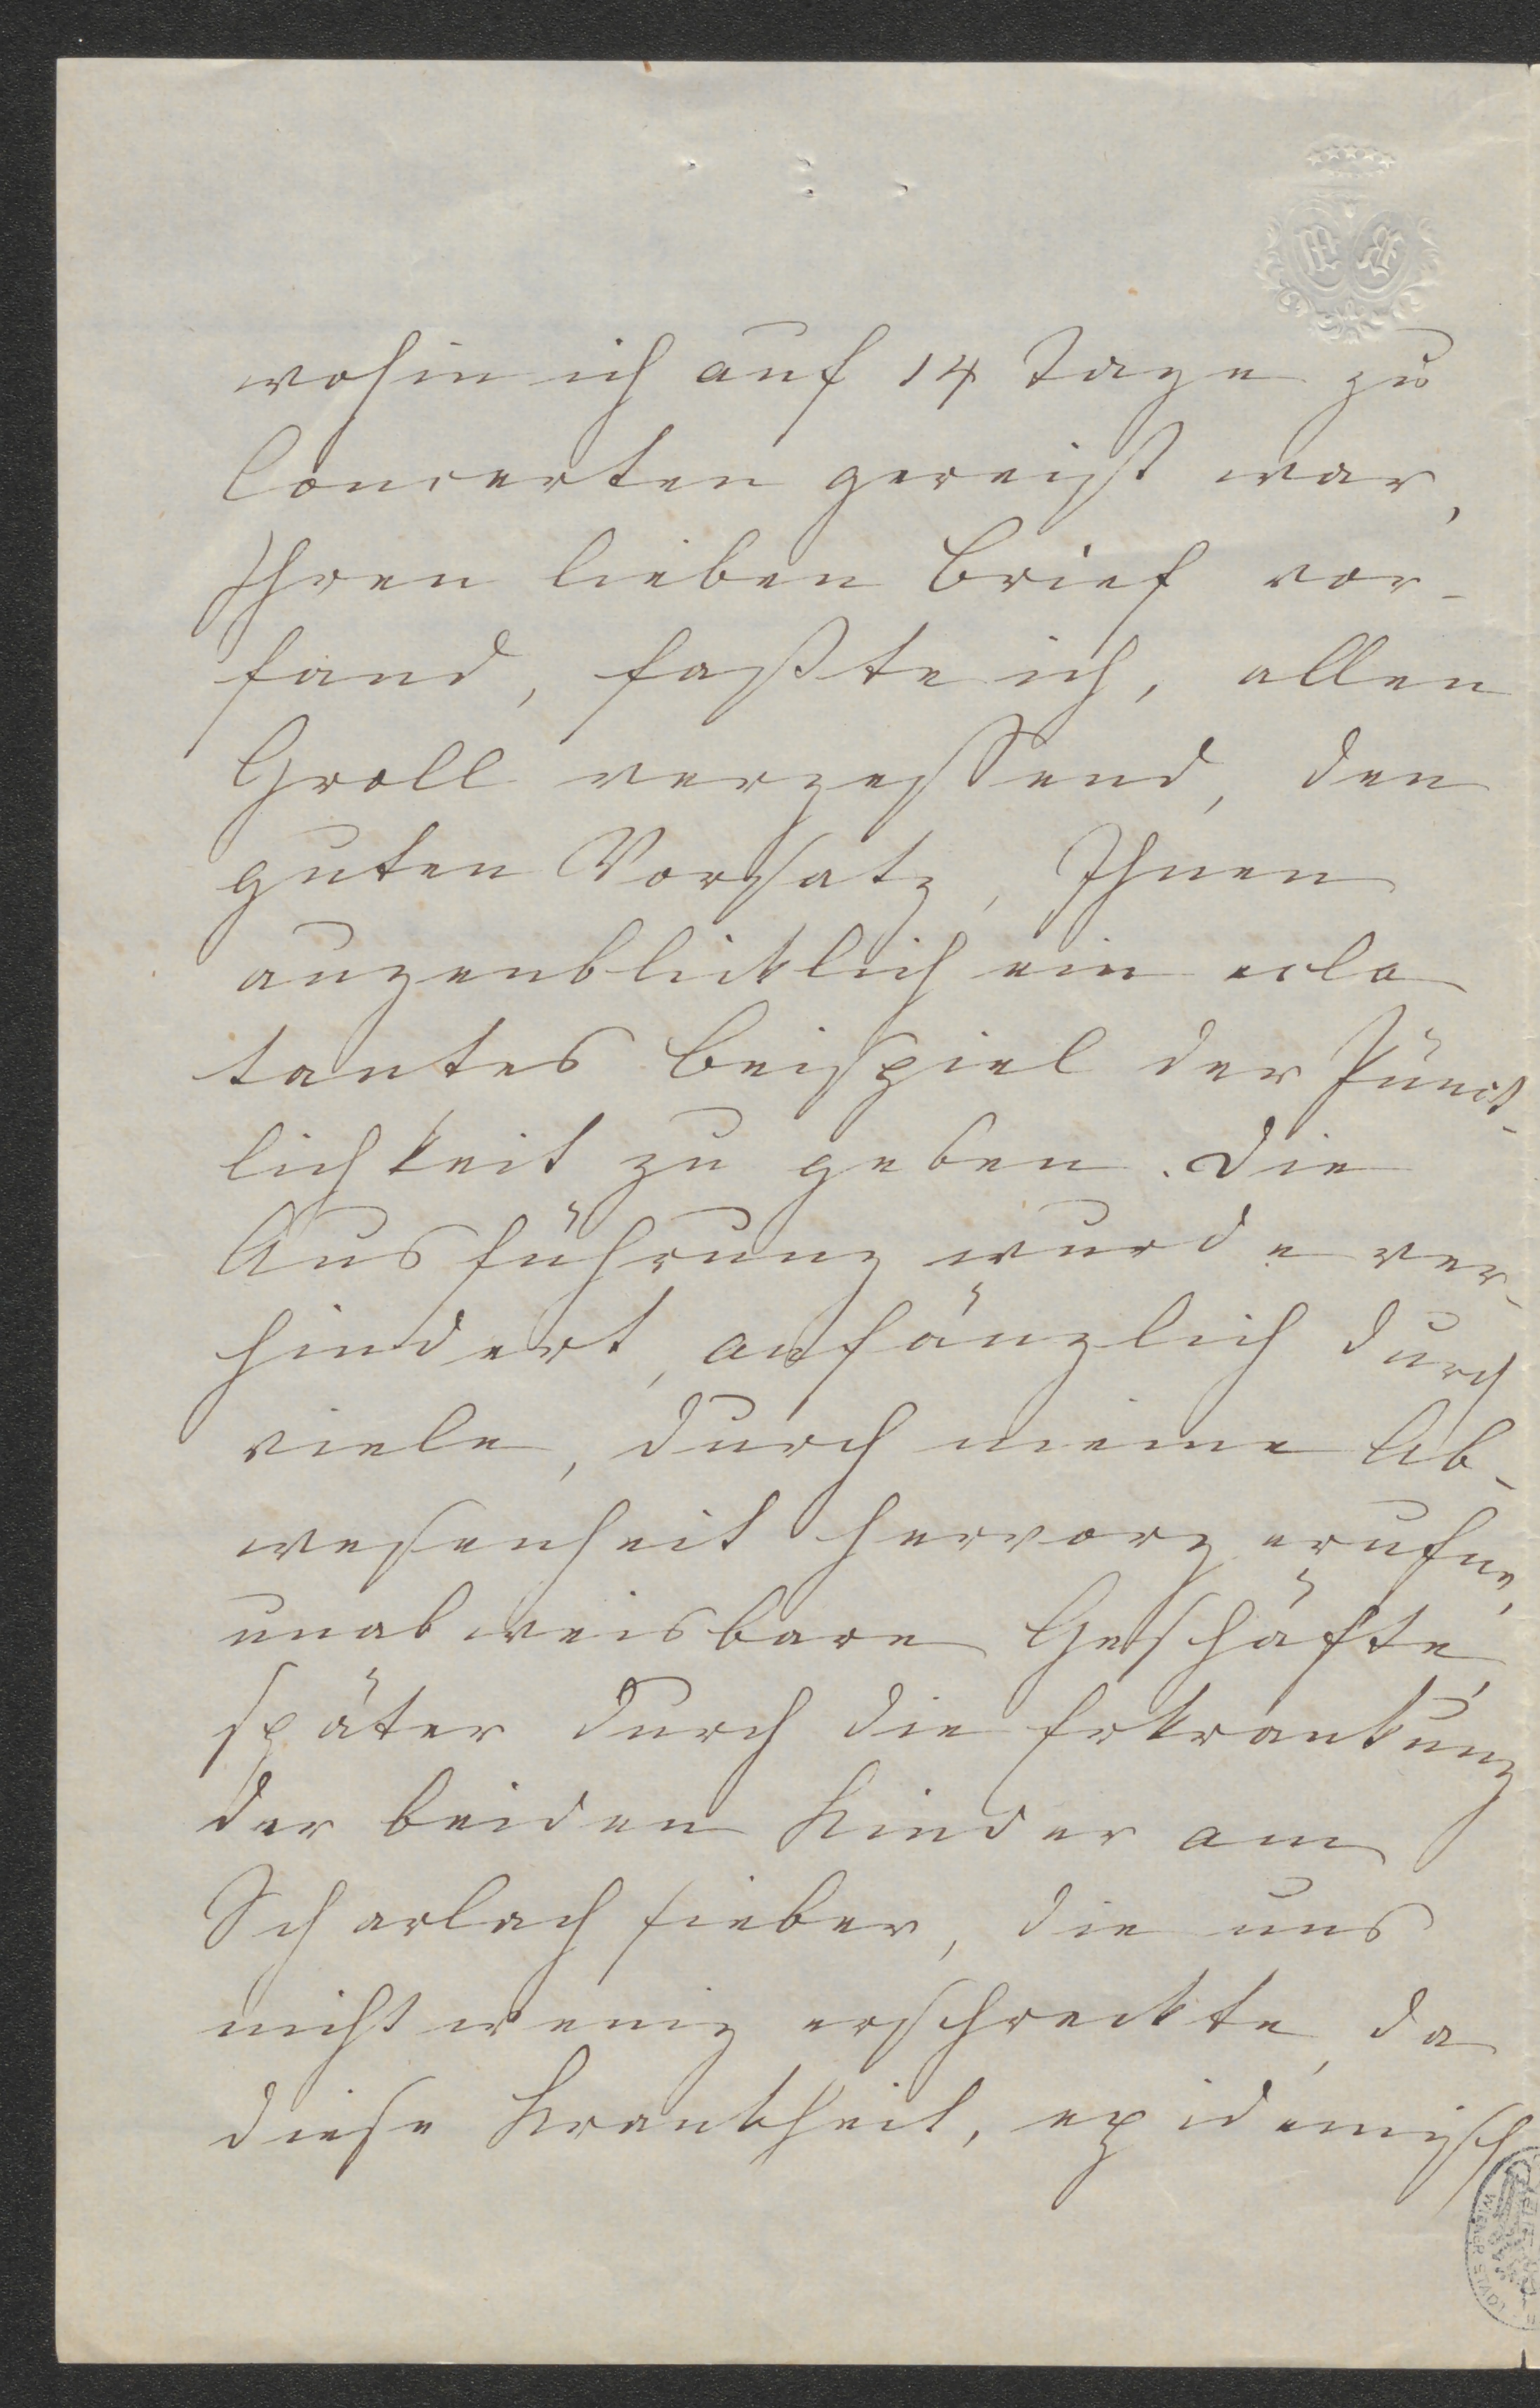 wohin ich auf 14 Tage zu
Concerten gereist war,
Ihren lieben Brief vor-
fand, faßte ich, allen
Groll vergessend, den
guten Vorsatz, Ihnen
augenblicklich ein ecla
tantes Beispiel der Pünct-
lichkeit zu geben. Die
Ausführung wurde ver-
hindert, anfänglich durch
viele, durch meine Ab-
wesenheit hervorgerufne,
unabweisbare Geschäfte,
später durch die Erkrankung
der beiden Kinder am
Scharlachfieber, die uns
nicht wenig erschreckte, da
diese Krankheit, epidemisch